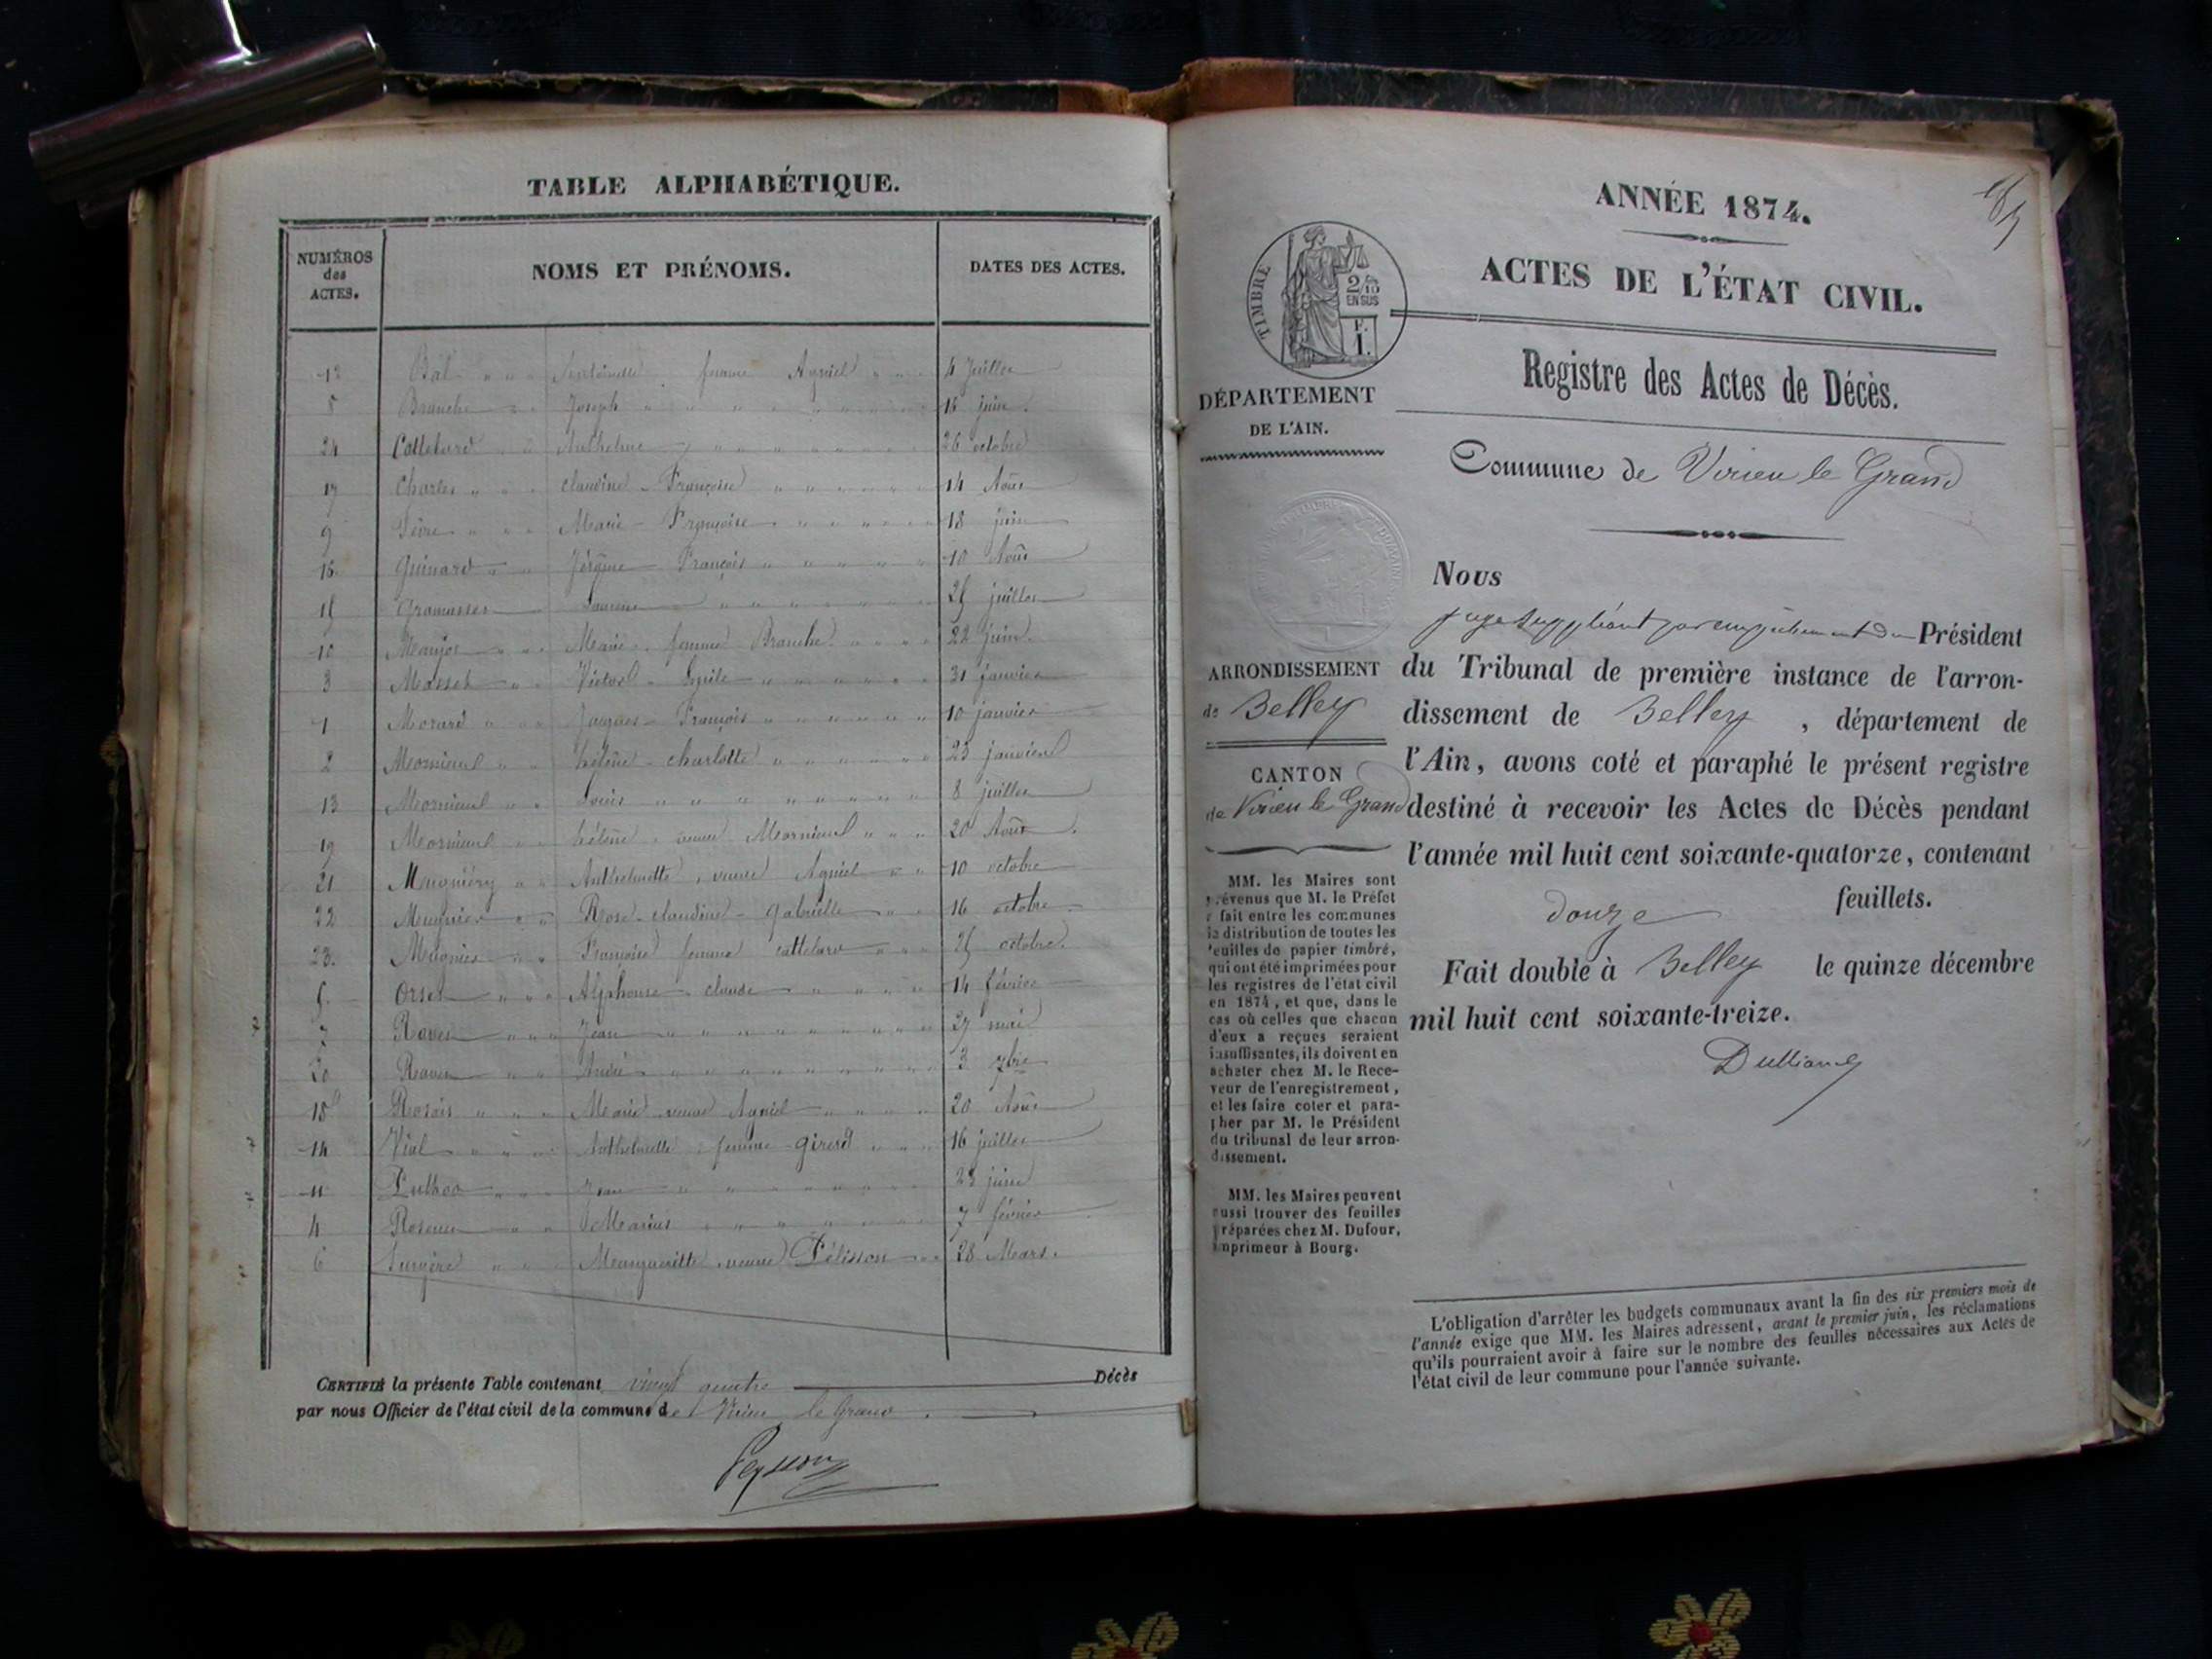 TABLE ALPHABÉTIQUE.
NUMÉROS
des
ACTES.
NOMS ET PRÉNOMS.
DATES DES ACTES.
12 Bal " " " femme " " 4 Juillet
Branche " " Joseph " " " 18 juin
24 Cattelard " " Anthelme " " " 26 octobre
17 Charles " " " claudine - Françoise " " " 14 Août
9 " " Marie - Françoise " " " 18 juin
16 Guinard " " Jérôme - François " " " 10 Août
15 " " 25 juillet
10 " " Marie - femme Branche " " " 22 juin
3 " " Victor - " " " 31 janvier
1 Morard " " Jacques - François " " " 10 janvier
2 Mornieul " " hélène - charlotte " " " 23 janvier
13 Mornieul " " Louis " " " 8 juillet
19 Mornieul " " hélène - veuve Mornieul " " " 20 Août
21 " " Anthelmette, veuve Ayniel " " 10 octobre
22 Mugnier " " Rose - claudine - Gabrielle " " 16 octobre
23. Mugnier " " Françoise femme Cattelard " " 25 octobre
5 Orset " " " Alphonse - claude " " " 14 février
7 " " " Jean " " " 27 mai
20 " " André " " " 3 7bre
18 " " " Marie veuve Ayniel " " " 20 Août
14 Vial " " " Anthelmette femme " " " 16 juillet
11 " " " Jean " " " 23 juin
4 " " Marius " " " 7 février
6 " " Marguerite veuve Pélisson " " 28 Mars.
CERTIFIÉ la présente Table contenant vingt quatre Décès
par nous Officier de l'état civil de la commune de Virieu le Grand.
Peysson
ANNÉE 1874.
ACTES DE L'ÉTAT CIVIL.
TIMBRE
2/10
EN SUS
F.
1.
DÉPARTEMENT
DE L'AIN.
Registre des Actes de Décès.
Commune de Virieu le Grand
Nous
juge suppléant par empêchement du Président
du Tribunal de première instance de l'arron-
dissement de Belley, département de
l'Ain, avons coté et paraphé le présent registre
destiné à recevoir les Actes de Décès pendant
l'année mil huit cent soixante-quatorze, contenant
douze feuillets.
Fait double à Belley le quinze décembre
mil huit cent soixante-treize.
ARRONDISSEMENT
de Belley
CANTON
de Virieu le Grand
MM. les Maires sont
prévenus que M. le Préfet
a fait entre les communes
la distribution de toutes les
feuilles de papier timbré,
qui ont été imprimées pour
les registres de l'état civil
en 1874, et que, dans le
cas où celles que chacun
d'eux a reçues seraient
insuffisantes, ils doivent en
acheter chez M. le Rece-
veur de l'enregistrement,
et les faire coter et para-
pher par M. le Président
du tribunal de leur arron-
dissement.
MM. les Maires peuvent
aussi trouver des feuilles
préparées chez M. Dufour,
imprimeur à Bourg.
L'obligation d'arrêter les budgets communaux avant la fin des six premiers mois de
l'année exige que MM. les Maires adressent, avant le premier juin, les réclamations
qu'ils pourraient avoir à faire sur le nombre des feuilles nécessaires aux Actes de
l'état civil de leur commune pour l'année suivante.